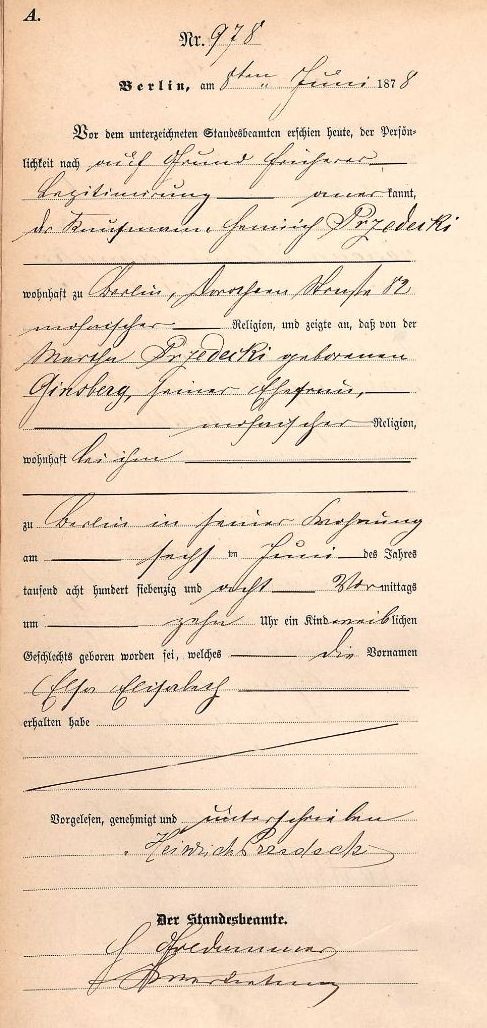 A.
Nr. 978
Berlin, am 8ten Juni 1878
Vor dem unterzeichneten Standesbeamten erschien heute, der Persön-
lichkeit nach auf Grund früherer
Legitimirung anerkannt,
der Kaufmann Heinrich Przedecki
wohnhaft zu Berlin, Dorotheen Straße 82
mosaischer Religion, und zeigte an, daß von der
Martha Przedecki geborenen
Ginsberg, seiner Ehefrau,
mosaischer Religion,
wohnhaft bei ihm
zu Berlin in seiner Wohnung
am sechs ten Juni des Jahres
tausend acht hundert siebenzig und acht Vormittags
um zehn Uhr ein Kind weiblichen
Geschlechts geboren worden sei, welches die Vornamen
Elsa Elisabeth
erhalten habe
Vorgelesen, genehmigt und unterschrieben
Heinrich Przedecki
Der Standesbeamte.
In Vertretung